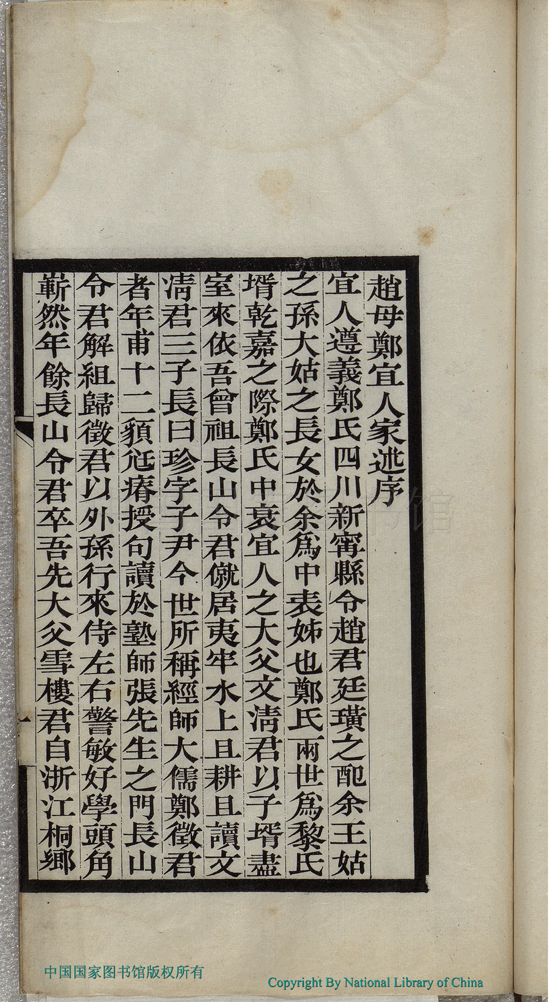 趙母鄭宜人家述序
宜人遵義鄭氏四川新甯縣令趙君廷璜之配余王姑
之孫大姑之長女於余爲中表姊也鄭氏兩世爲黎氏
壻乾嘉之際鄭氏中衰宜人之大父文淸君以子壻盡
室來依吾曾祖長山令君僦居夷牢水上且耕且讀文
淸君三子長曰珍字子尹今世所稱經師大儒鄭徵君
者年甫十二頯尩瘠授句讀於塾師張先生之門長山
令君解組歸徵君以外孫行來侍左右警敏好學頭角
嶄然年餘長山令君卒吾先大父雪樓君自浙江桐鄉
中国国家图书馆版权所有
Copyright By National Library of China